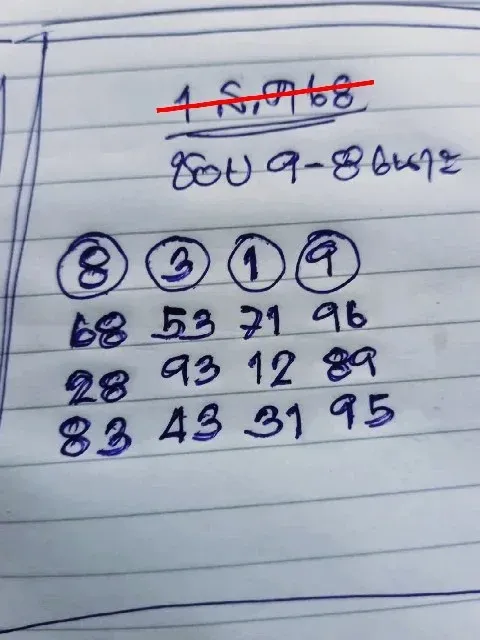 1 ส.ค 68
ชอบ 9-8 เน้าะ
8 3 1 9
68 53 71 96
28 93 12 89
83 43 31 95